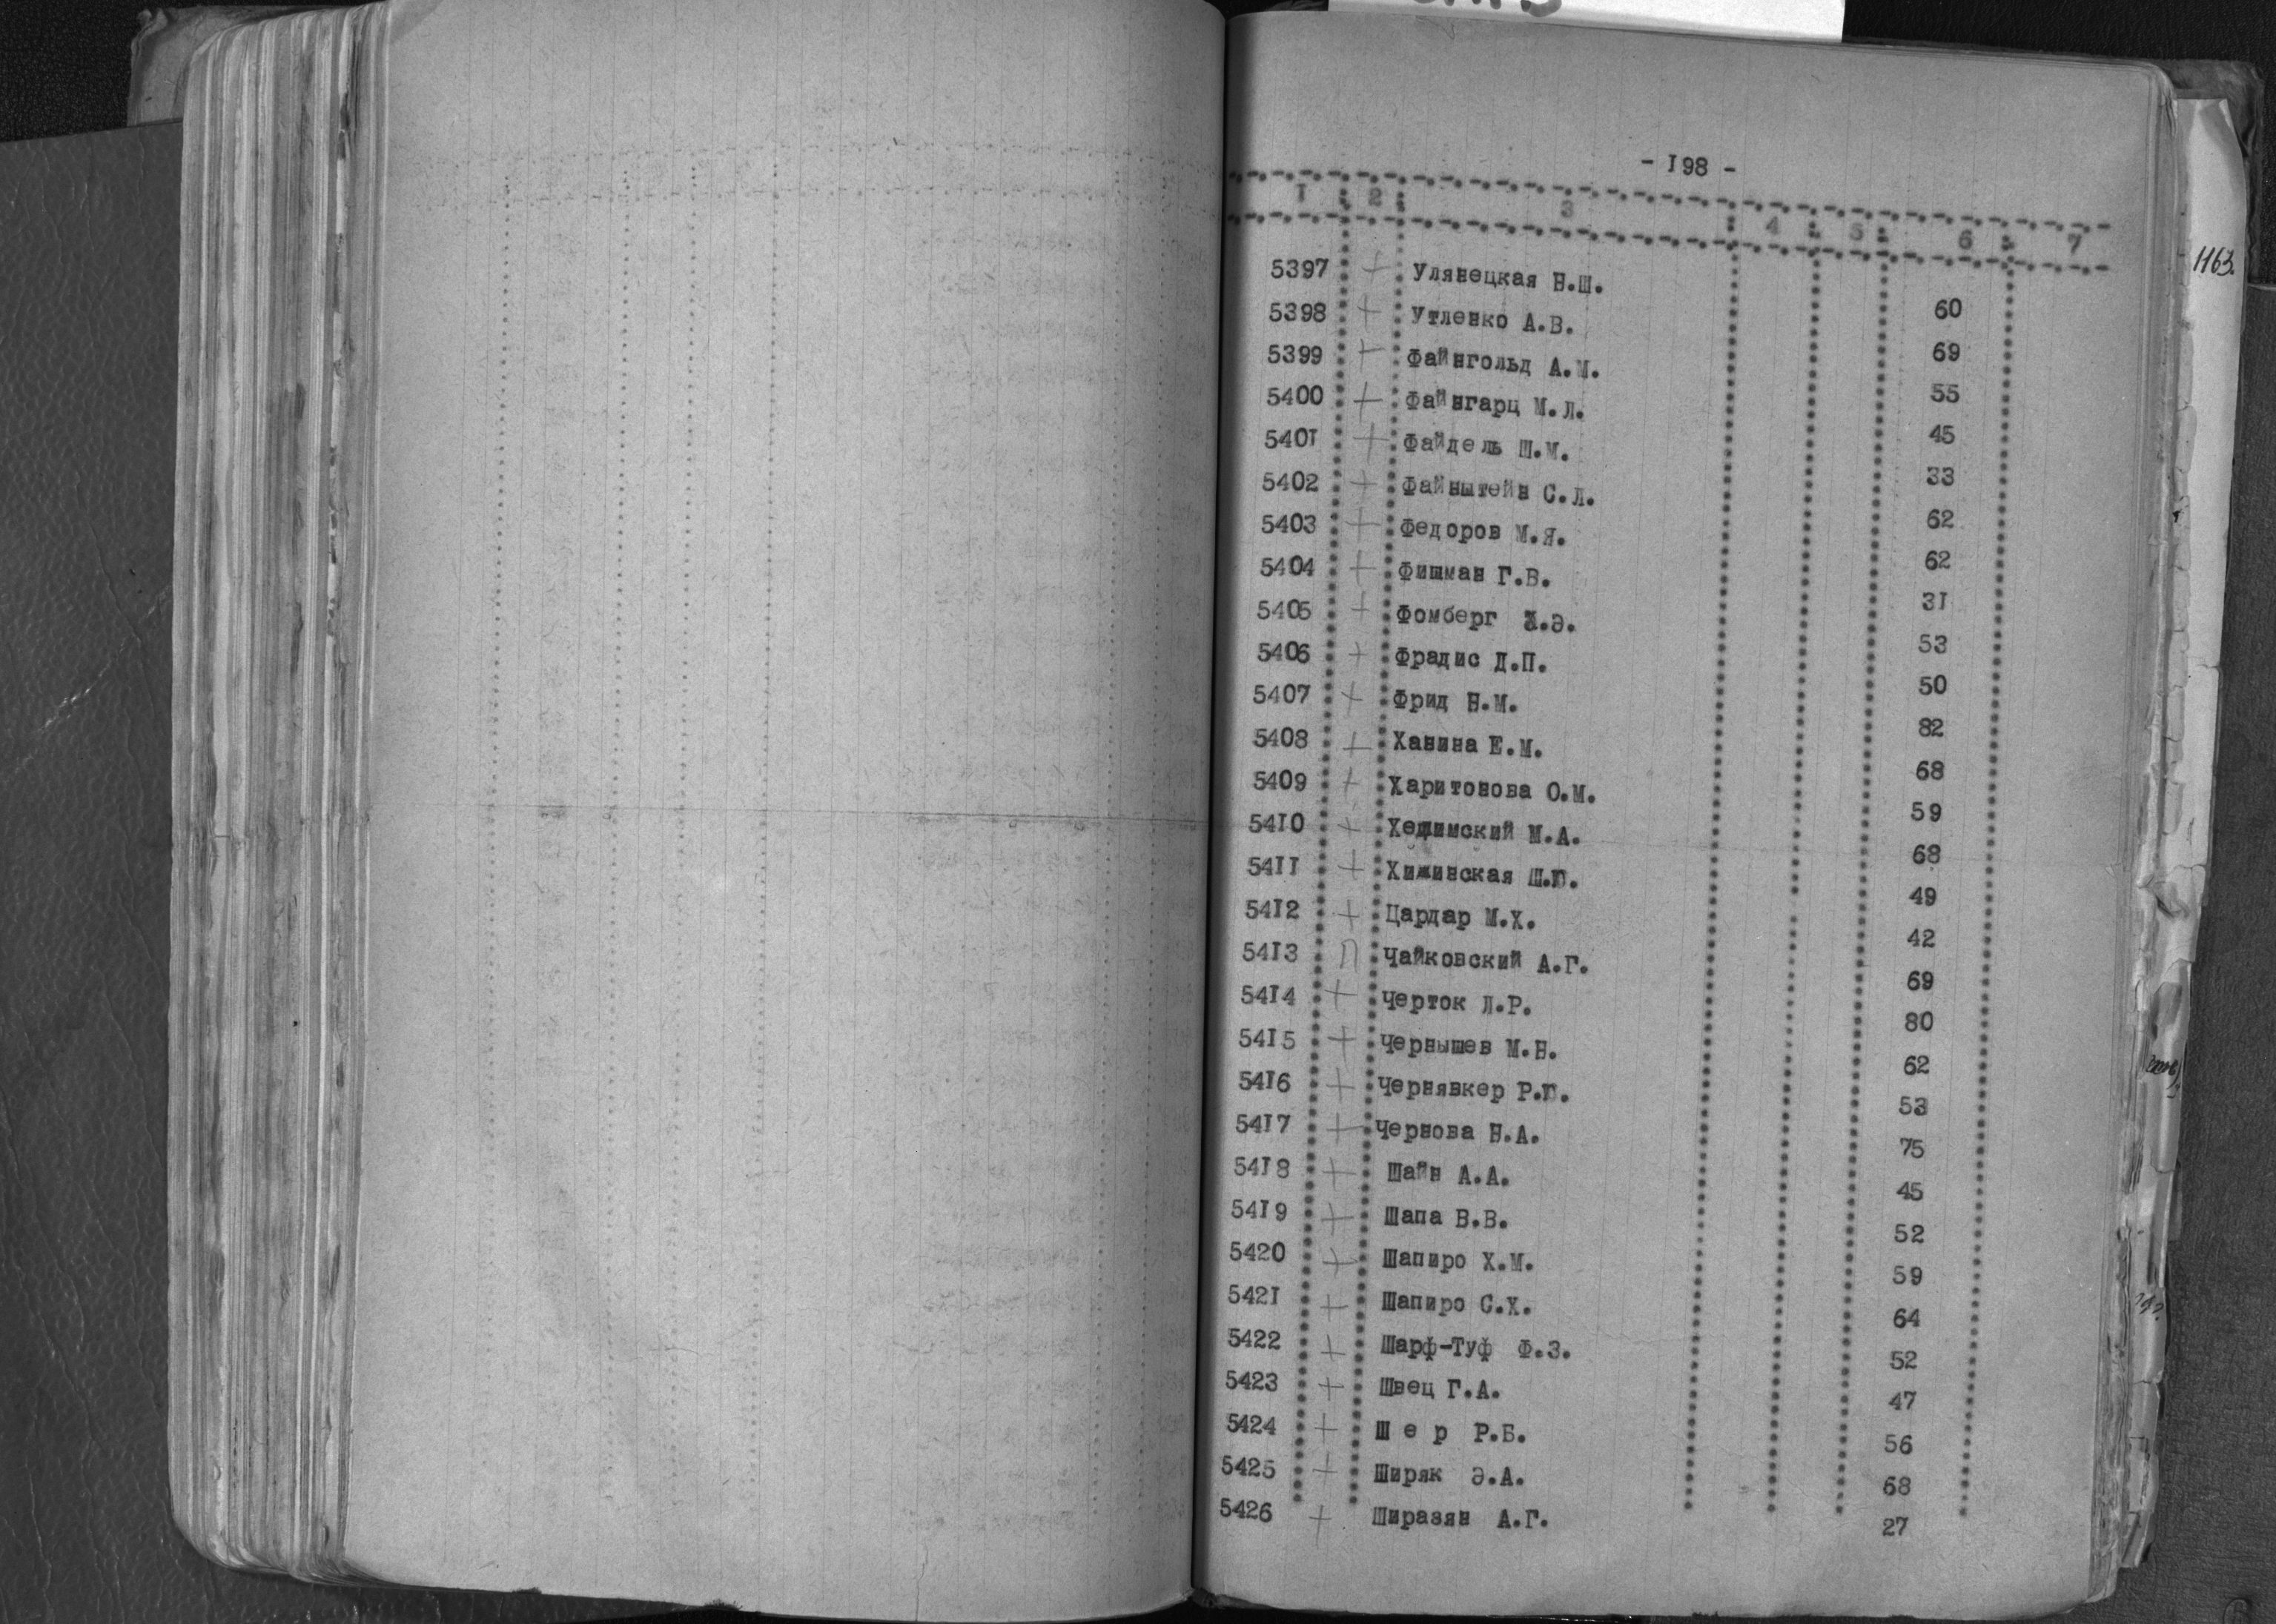 - 198 -
1 2 3 4 5 6 7
1163.
5397 + Улянецкая Н.Ш. 60
5398 + Утленко А.В. 69
5399 + Файнгольд А.М. 55
5400 + Файнгарц М.Л. 45
5401 + Файдель Ш.М. 33
5402 + Файнштейн С.Л. 62
5403 + Федоров М.Я. 62
5404 + Фишман Г.В. 31
5405 + Фомберг Э. 53
5406 + Фрадис Д.П. 50
5407 + Фрид Н.М. 82
5408 + Ханина Е.М. 68
5409 + Харитонова О.М. 59
5410 + М.А. 68
5411 + Хижинская Ш.Ю. 49
5412 + Цардар М.Х. 42
5413 П Чайковский А.Г. 69
5414 + Черток Л.Р. 80
5415 + Чернышев М.Н. 62
5416 + Чернявкер Р.Ю. 53
5417 + Чернова Н.А. 75
5418 + Шайн А.А. 45
5419 + Шапа В.В. 52
5420 + Шапиро Х.М. 59
5421 + Шапиро С.Х. 64
5422 + Шарф-Туф Ф.З. 52
5423 + Швец Г.А. 47
5424 + Ш е р Р.Б. 56
5425 + Ширяк Э.А. 68
5426 + Ширазян А.Г. 27